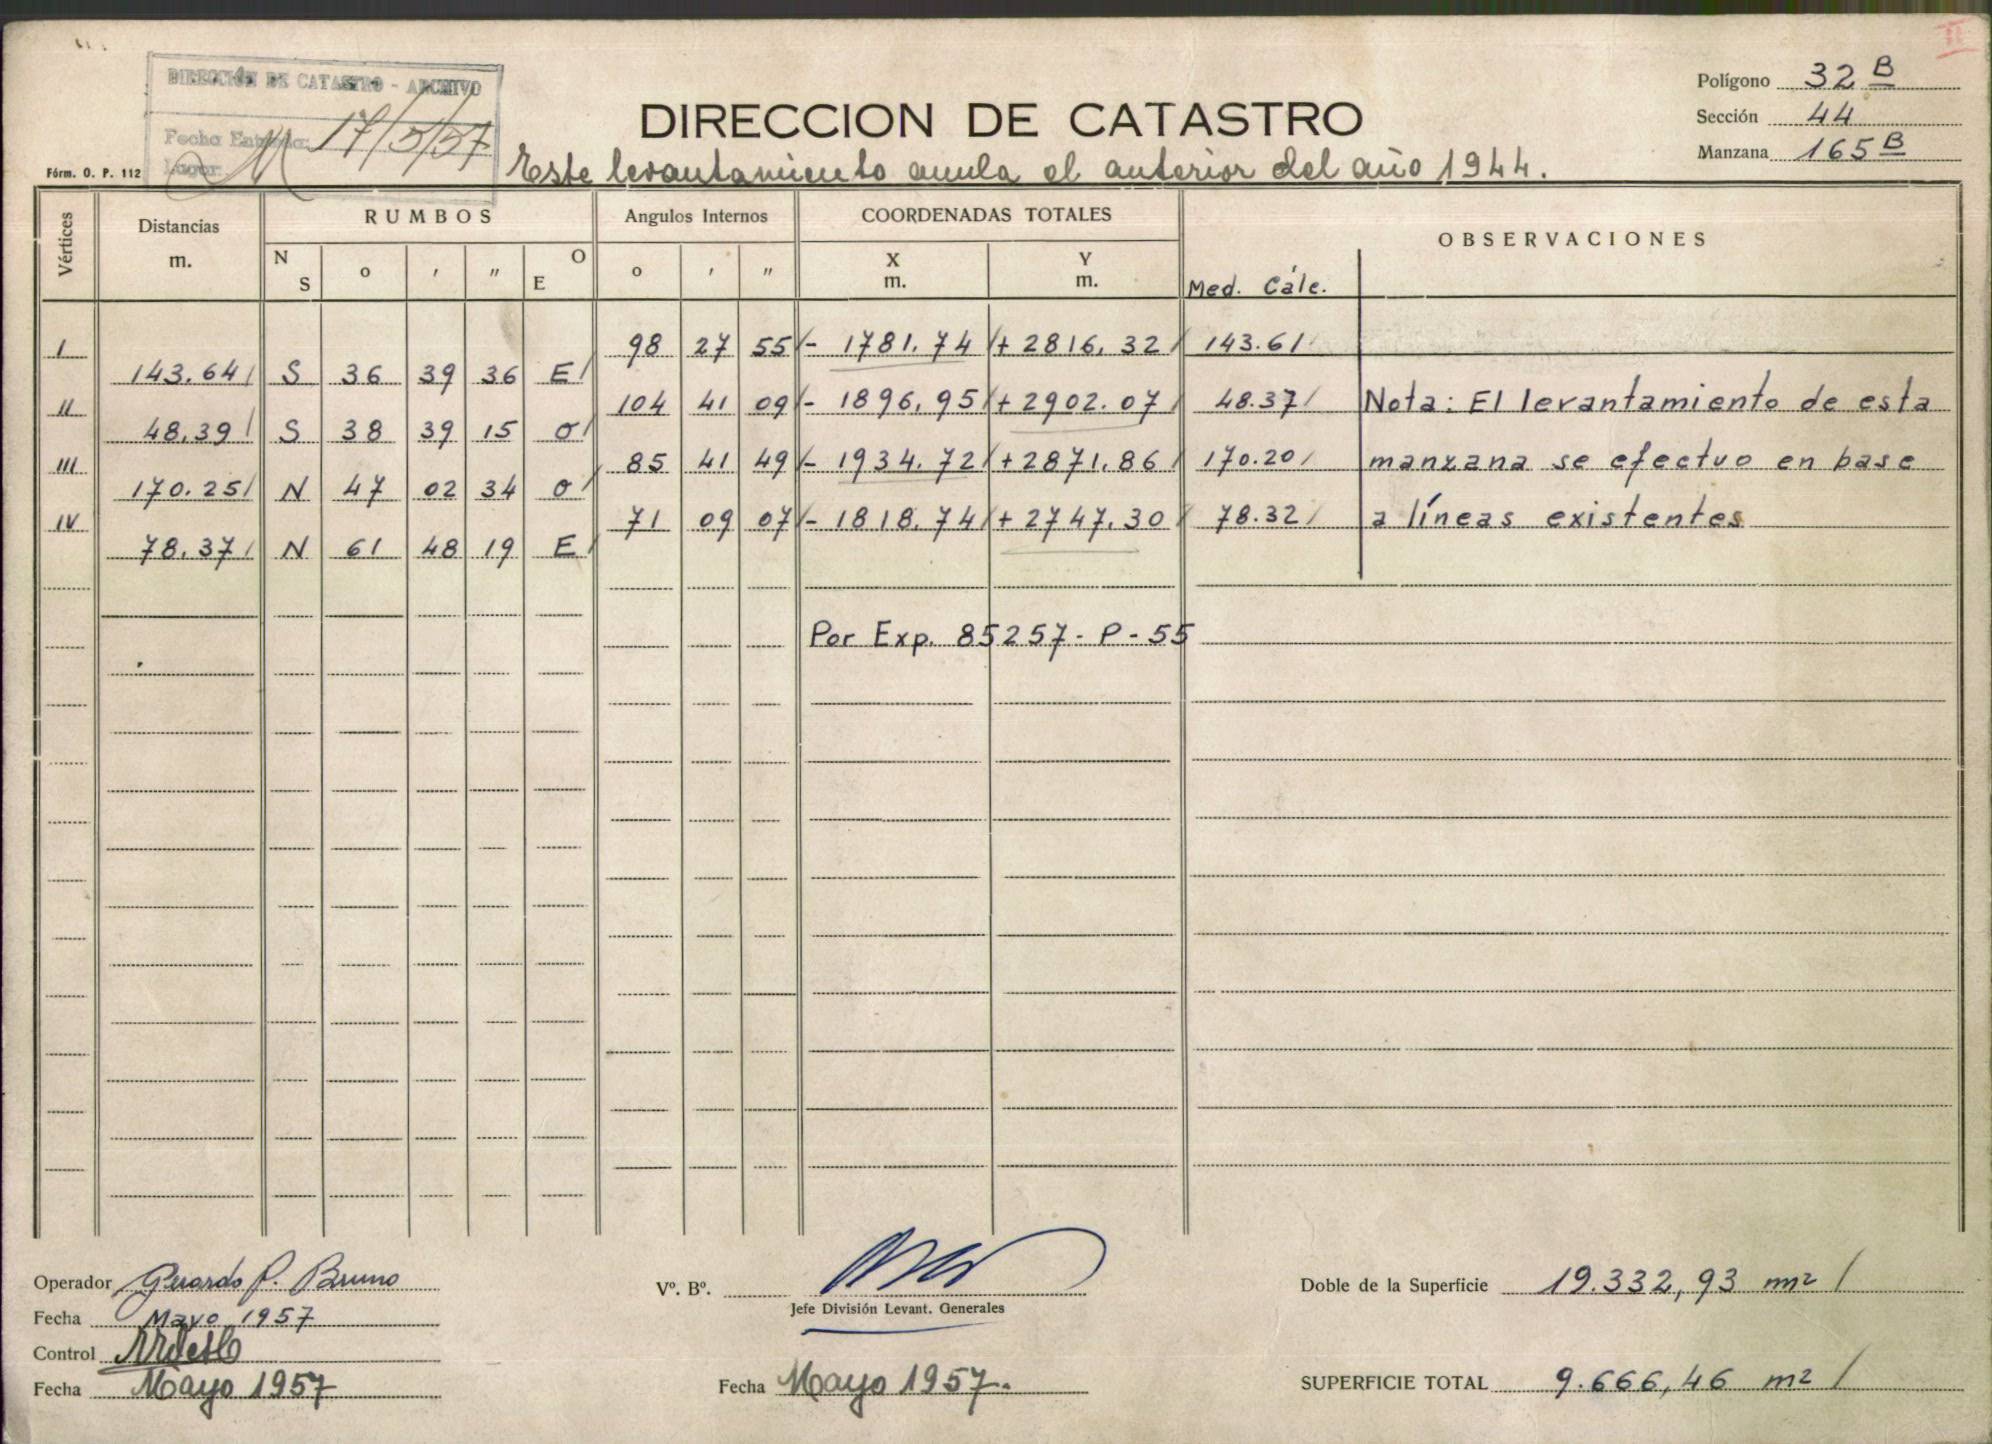 II
DIRECCIÓN DE CATASTRO - ARCHIVO
Fecha Entrada: 17/5/57
Lugar:
Polígono 32 B
Sección 44
Manzana 165 B
DIRECCION DE CATASTRO
Fórm. O. P. 112
Este levantamiento anula el anterior del año 1944.
Vértices Distancias m. RUMBOS Angulos Internos COORDENADAS TOTALES OBSERVACIONES
N S o ′ ″ O E o ′ ″ X m. Y m. Med. Cálc.
I 98 27 55 - 1781.74 + 2816,32 143.61
143.64 S 36 39 36 E
II 104 41 09 - 1896,95 + 2902.07 48.37 Nota: El levantamiento de esta
48.39 S 38 39 15 O
III 85 41 49 - 1934.72 + 2871.86 170.20 manzana se efectuo en base
170.25 N 47 02 34 O
IV 71 09 07 - 1818.74 + 2747.30 78.32 a líneas existentes
78.37 N 61 48 19 E
Por Exp. 85257 - P - 55
Operador Gerardo P. Bruno
Fecha Mayo 1957
Control
Fecha Mayo 1957
Vº. Bº.
Jefe División Levant. Generales
Fecha Mayo 1957.
Doble de la Superficie 19.332,93 m2
SUPERFICIE TOTAL 9.666,46 m2